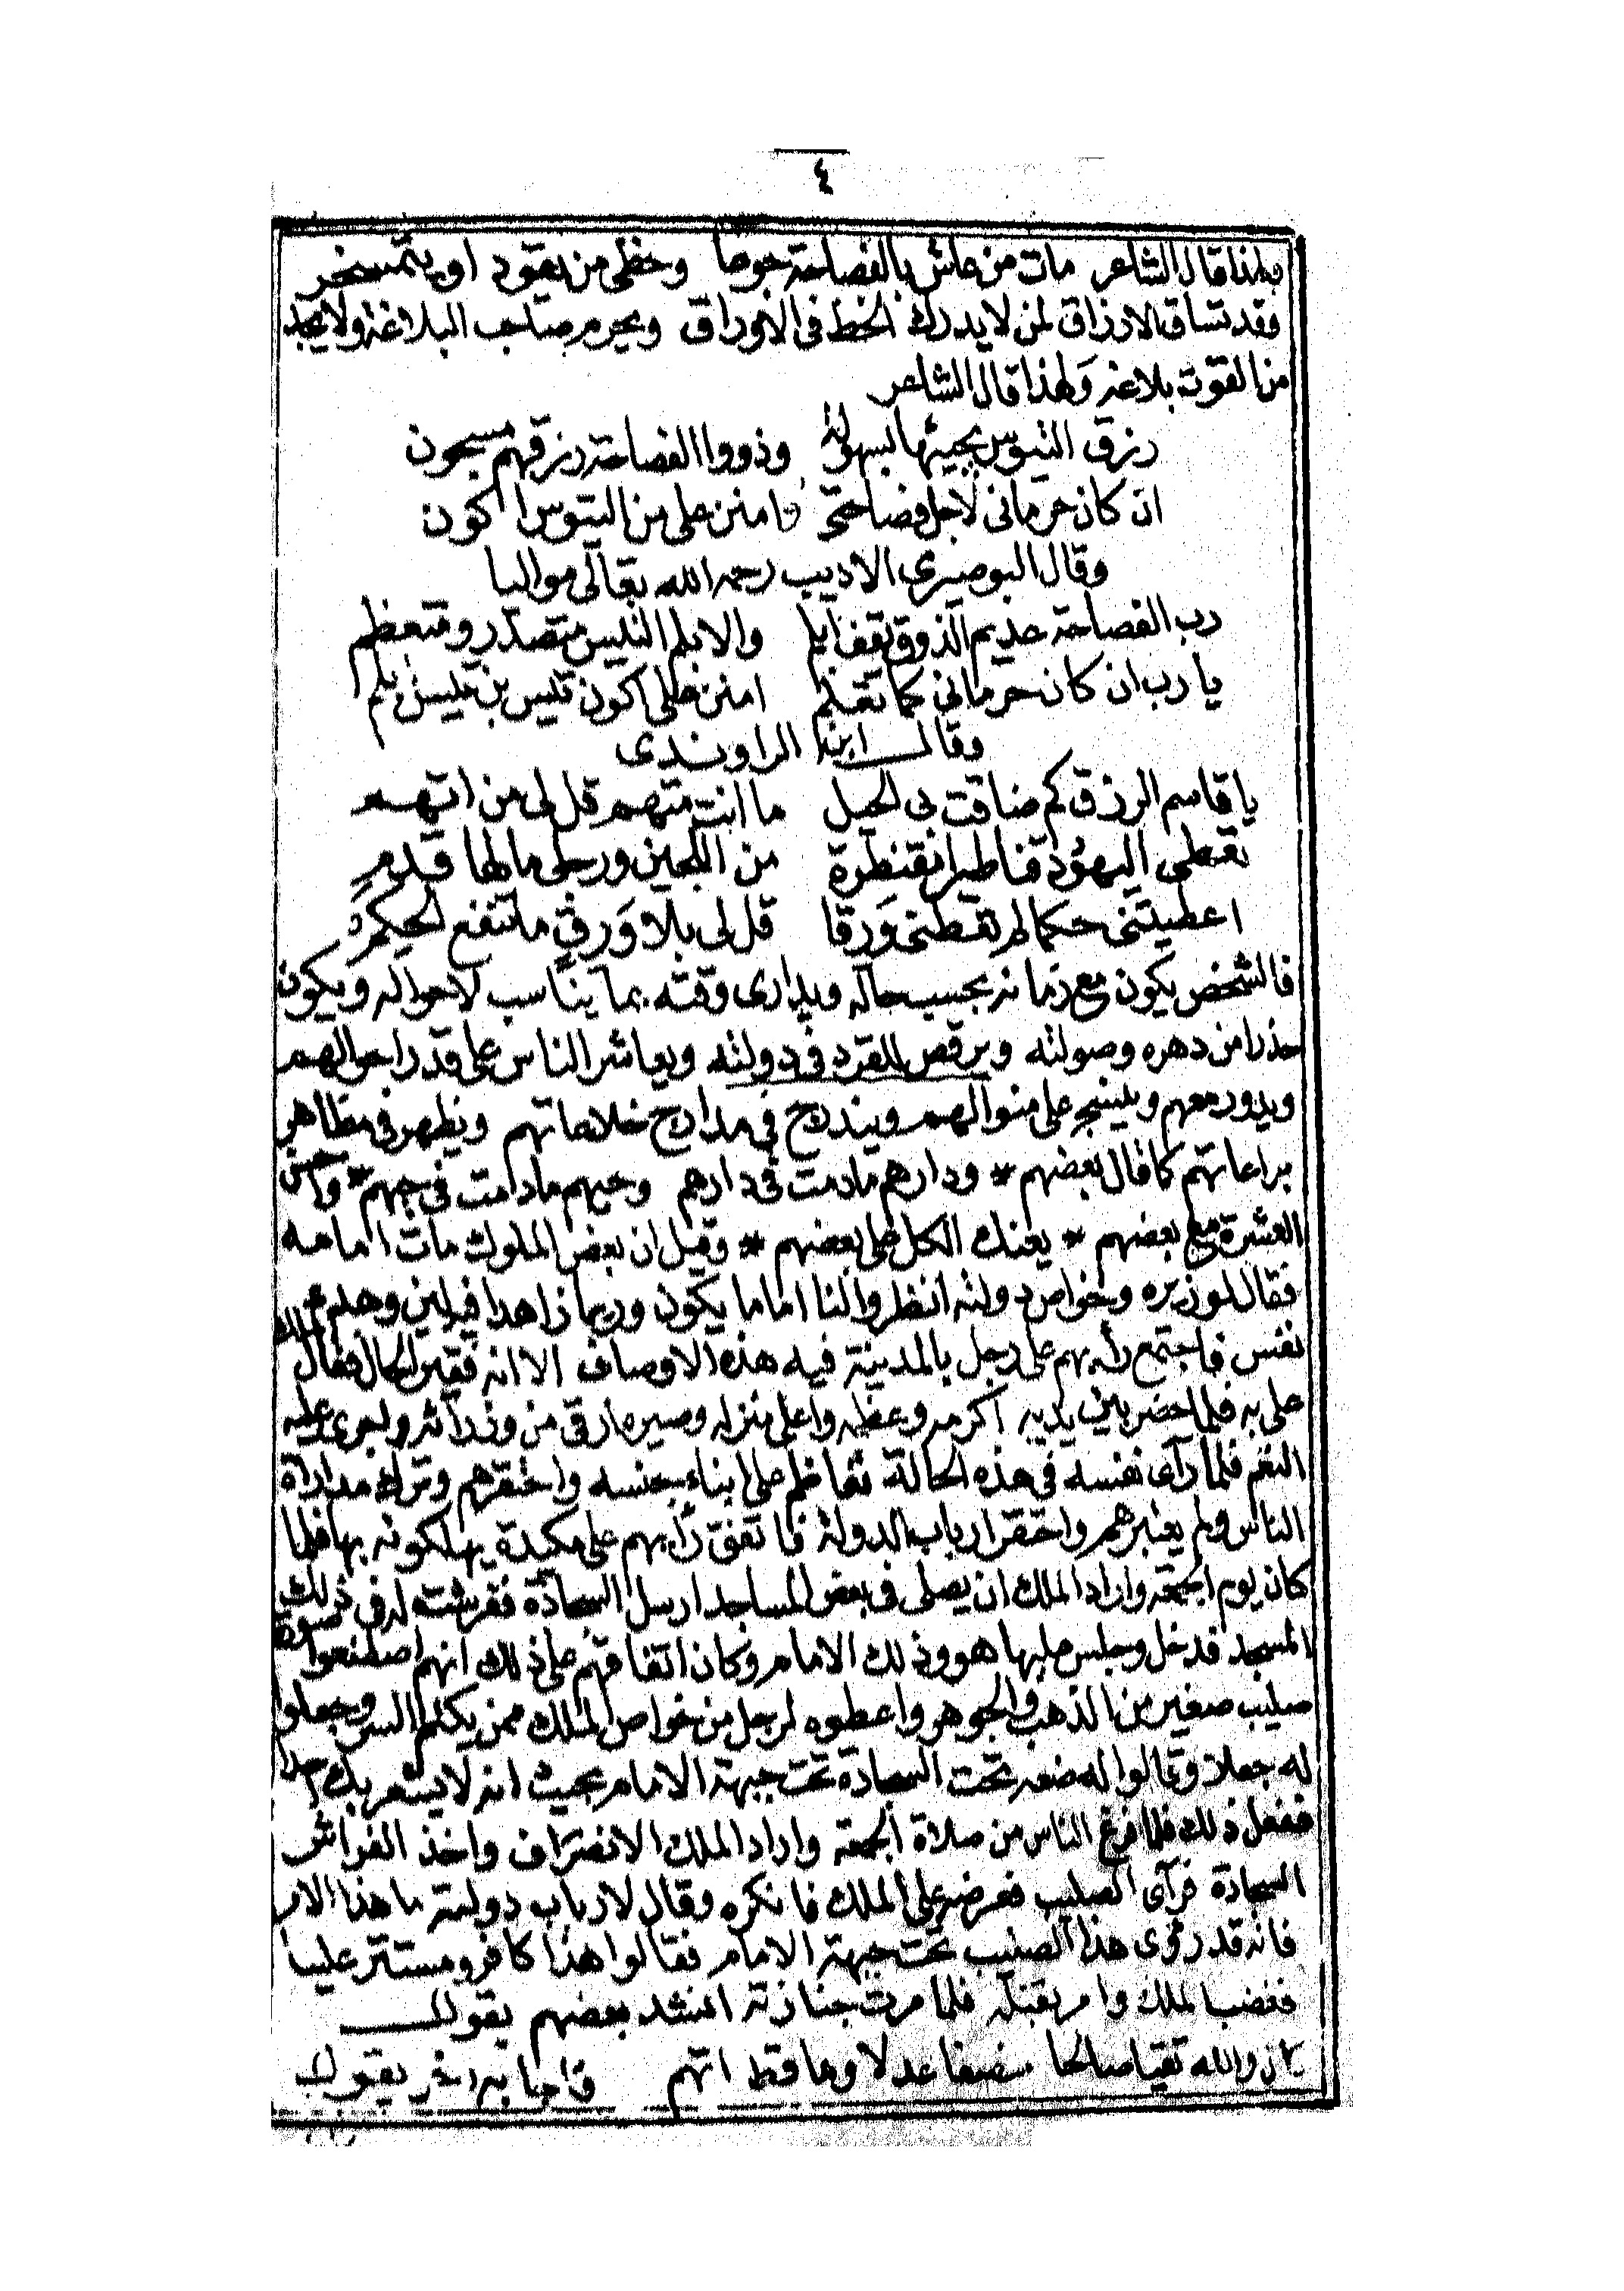 ٤
ولهذا قال الشاعر مات من عاش بالفصاحة جوعا وحظى من يقود او يتمسخر
وقد تساق الارزاق لمن لا يدرك الخط فى الاوراق ويحرم صاحب البلاغة ولا يجد
من القوت بلاغه ولهذا قال الشاعر
رزق التيوس يجيئها بسهولة وذووا الفصاحة رزقهم مسجون
ان كان حرمانى لاجل فصاحتى فامنن على من التيوس اكون
وقال البوصيرى الاديب رحمه الله تعالى مواليا
رب الفصاحة عديم الذوق تقف ابلم والابلم التيس متصدر ومتعظم
يا رب ان كان حرمانى كما تعلم امنن على اكون تيس بن تيس ابلم
وقال ابن الراوندى
يا قاسم الرزق كم ضاقت بى الحيل ما انت متهم قل لى من اتهم
تعطى اليهود قناطيرا مقنطرة من اللجين ورجلى مالها قدم
اعطيتنى حكما لم تعطنى ورقا قل لى بلا ورق ما تنفع الحكم
فالشخص يكون مع زمانه بحسب حاله ويدارى وقته بما يناسب لاحواله ويكون
حذرا من دهره وصولته ويرقص للقرد فى دولته ويعاشر الناس على قدر احوالهم
ويدور معهم وينسج على منوالهم ويندرج فى مدارج خلاعاتهم ويظهر فى مظاهر
براعاتهم كما قال بعضهم * ودارهم مادمت فى دارهم وحيهم مادامت فى حيهم * واحسن
العشرة مع بعضهم * يعنك الكل على بعضهم * وقيل ان بعض الملوك مات امامه
فقال لوزيره وخواص دولته انظروا لنا اماما يكون ورعا زاهدا فيه لين وعدم
نفس فاجتمع رأيهم على رجل بالمدينة فيه هذه الاوصاف الا انه فقير الحال فقال
على به فلما حضر بين يديه اكرمه وعظمه واعلى منزله وصيره ارقى من وزرائه واجرى عليه
النعم فلما رآى نفسه فى هذه الحالة تعاظم على ابناء جنسه واحتقرهم وترك مداراة
الناس ولم يعتبرهم واحتقر ارباب الدولة فاتفق رأيهم على مكيدة يهلكونه بها فلما
كان يوم الجمعة واراد الملك ان يصلى فى بعض المساجد ارسل السجادة ففرشت له فى ذلك
المسجد فدخل وجلس عليها هو وذلك الامام وكان اتفاقهم على ذلك انهم اصطنعوا صورة
صليب صغير من الذهب والجوهر واعطوه لرجل من خواص الملك ممن يكتم السر وجعلوا
له جعلا وقالوا له ضعه تحت السجادة تحت جبهة الامام بحيث انه لا يشعر بك احد
ففعل ذلك فلما فرغ الناس من صلاة الجمعة واراد الملك الانصراف واخذ الفراش
السجادة فرآى الصليب فعرضه على الملك فانكره وقال لارباب دولته ما هذا الامر
فانه قد رؤى هذا الصليب تحت جبهة الامام فقالوا هذا كافر ومستتر علينا
فغضب الملك وامر بقتله فلما مرت جنازته انشد بعضهم يقول
كان والله تقيا صالحا منصفا عدلا وما قط اتهم فاجابه اخر يقول